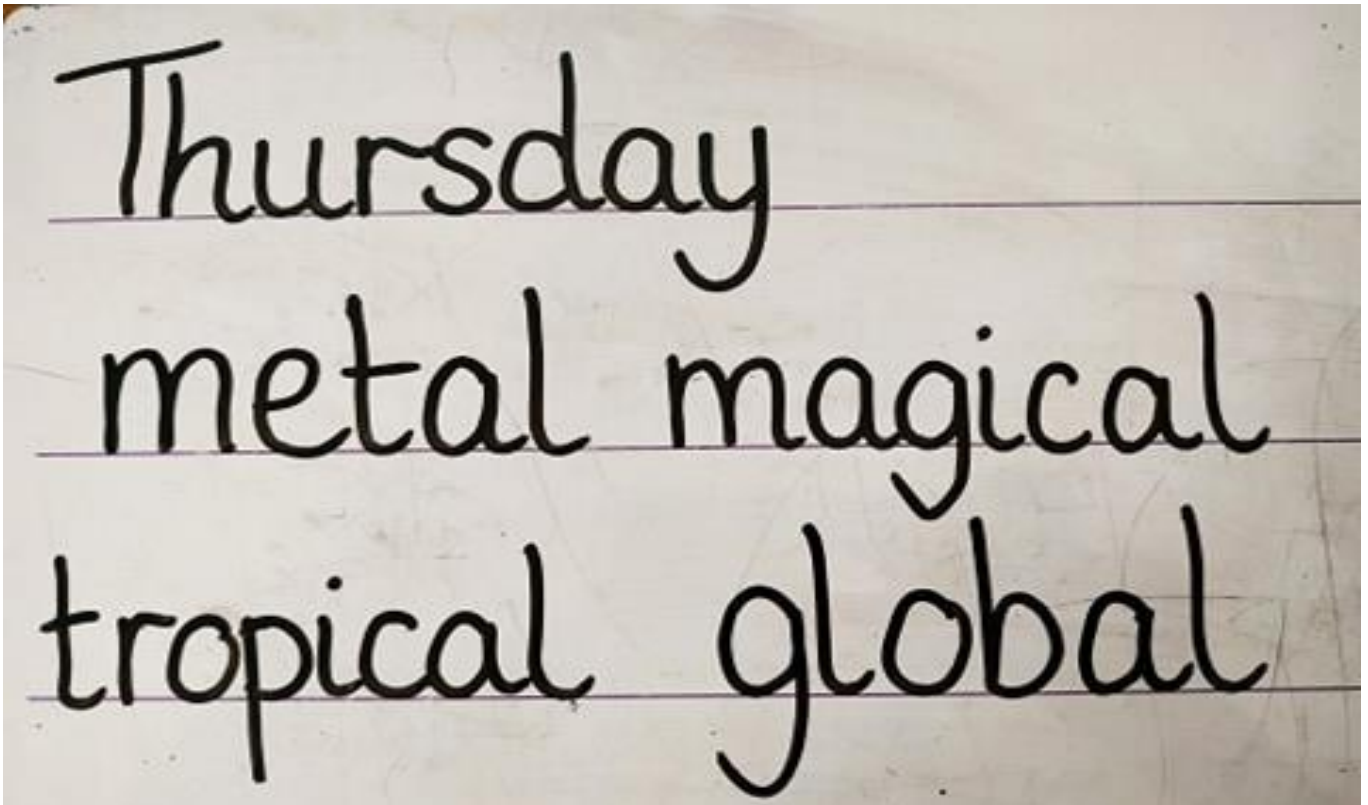 Thursday
metal magical
tropical global